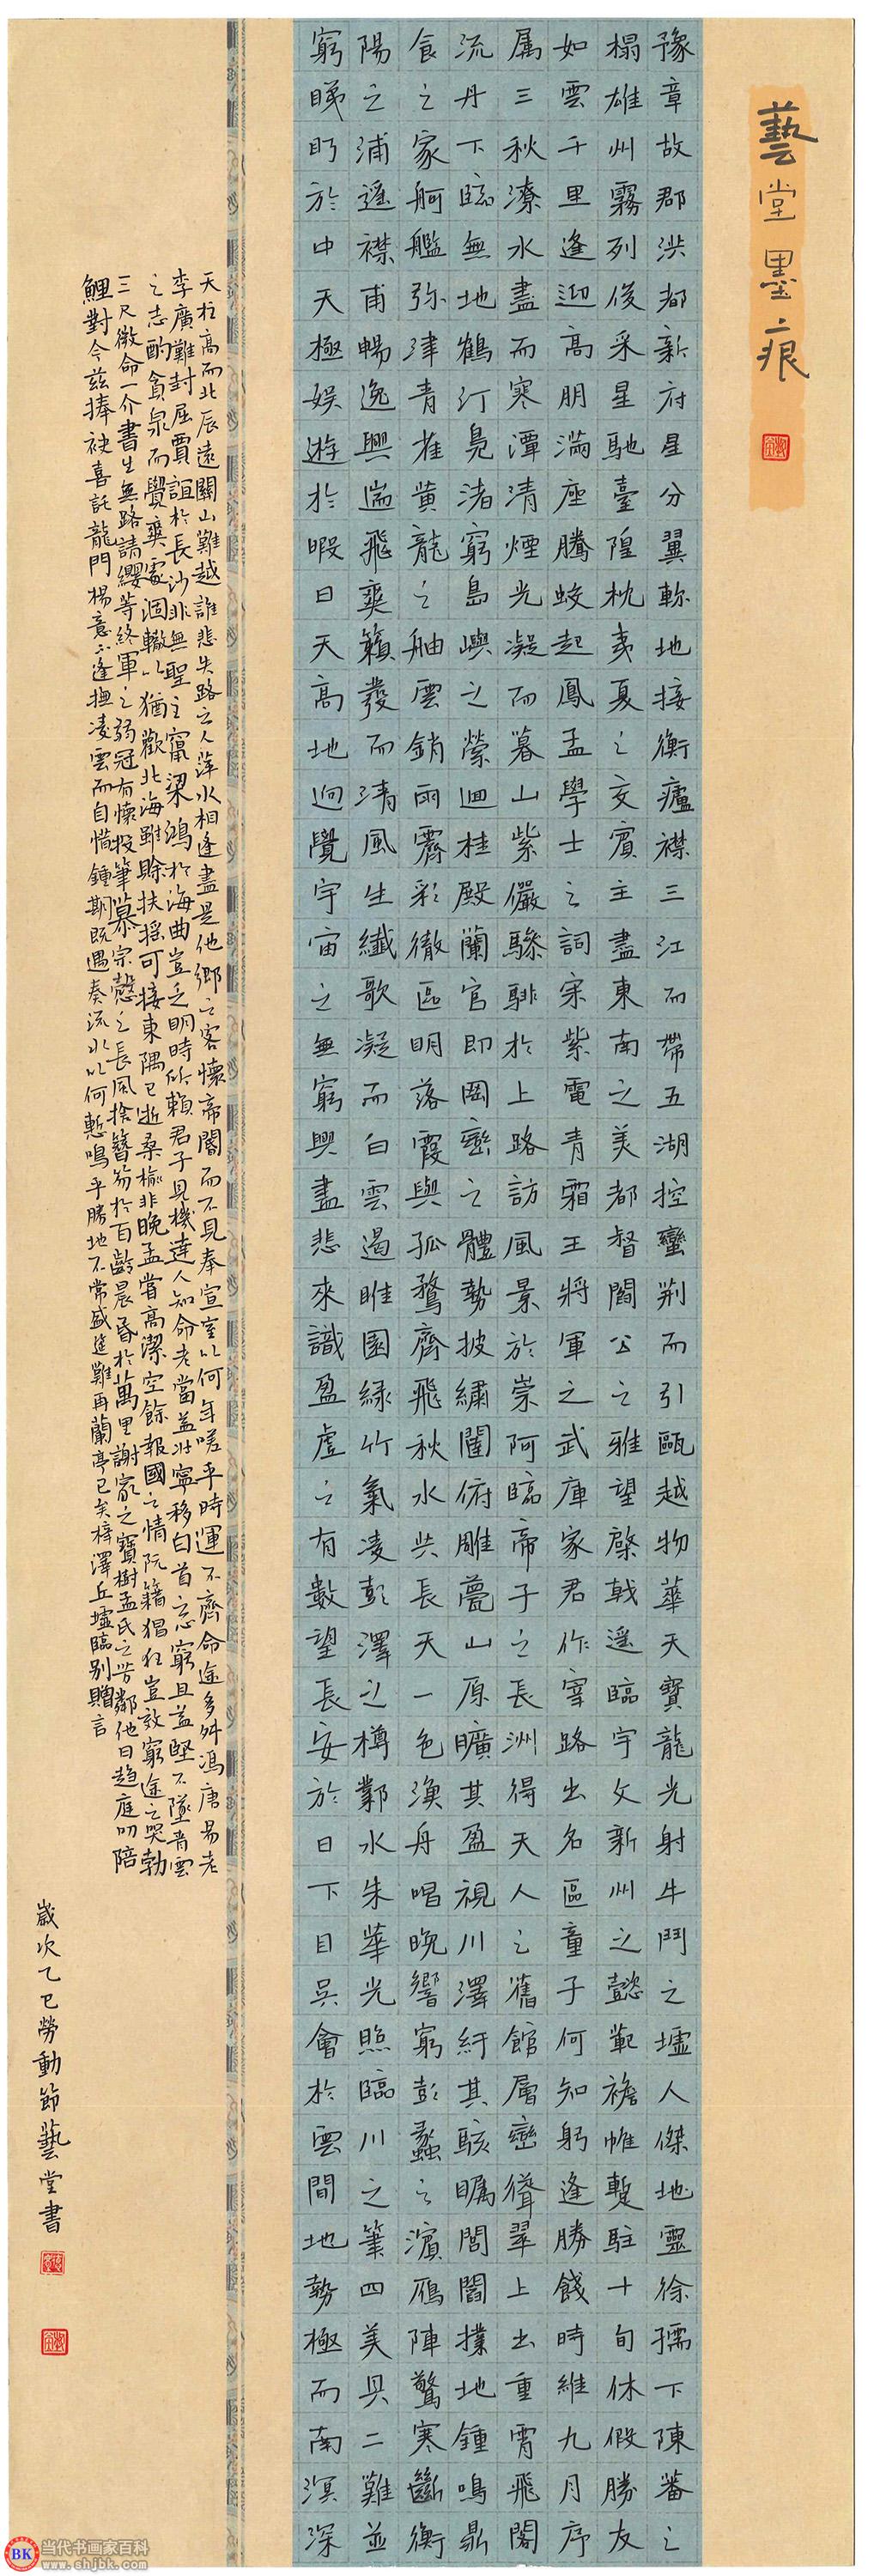 藝堂墨痕
豫章故郡洪都新府星分翼軫地接衡廬襟三江而帶五湖控蠻荊而引甌越物華天寶龍光射牛鬥之墟人傑地靈徐孺下陳蕃之
榻雄州霧列俊采星馳臺隍枕夷夏之交賓主盡東南之美都督閻公之雅望棨戟遥臨宇文新州之懿範襜帷暫駐十旬休假勝友
如雲千里逢迎高朋滿座騰蛟起鳳孟學士之詞宗紫電青霜王將軍之武庫家君作宰路出名區童子何知躬逢勝餞時維九月序
属三秋潦水盡而寒潭清煙光凝而暮山紫儼驂騑於上路訪風景於崇阿臨帝子之長洲得天人之舊館層巒聳翠上出重霄飛閣
流丹下臨無地鶴汀鳧渚窮島嶼之縈迴桂殿蘭宫即岡巒之體勢披繡闥俯雕甍山原曠其盈視川澤紆其駭矚閭閻撲地鍾鳴鼎
食之家舸艦弥津青雀黄龍之舳雲銷雨霽彩徹區明落霞與孤鶩齊飛秋水共長天一色漁舟唱晚響窮彭蠡之濱雁陣驚寒斷衡
陽之浦遥襟甫暢逸興遄飛爽籟發而清風生纖歌凝而白雲遏睢園緑竹氣凌彭澤之樽鄴水朱華光照臨川之筆四美具二難並
窮睇眄於中天極娱遊於暇日天高地迥覺宇宙之無窮興盡悲來識盈虚之有數望長安於日下目吳會於雲間地勢極而南溟深
天柱高而北辰遠關山難越誰悲失路之人萍水相逢盡是他鄉之客懷帝閽而不見奉宣室以何年嗟乎時運不齊命途多舛馮唐易老
李廣難封屈賈誼於長沙非無聖主竄梁鴻於海曲豈乏明時所賴君子見機達人知命老當益壯寧移白首之心窮且益堅不墜青雲
之志酌貪泉而覺爽處涸轍以猶歡北海雖賒扶摇可接東隅已逝桑榆非晚孟嘗高潔空餘報國之情阮籍猖狂豈效窮途之哭勃
三尺微命一介書生無路請纓等終軍之弱冠有懷投筆慕宗慤之長風捨簪笏於百齡晨昏於萬里謝家之寶樹孟氏之芳鄰他日趨庭叨陪
鯉對今兹捧袂喜託龍門楊意不逢撫凌雲而自惜鍾期既遇奏流水以何慙鳴乎勝地不常盛筵難再蘭亭已矣梓澤丘墟臨别贈言
歲次乙巳勞動節藝堂書
BK 当代书画家百科
www.shjbk.com